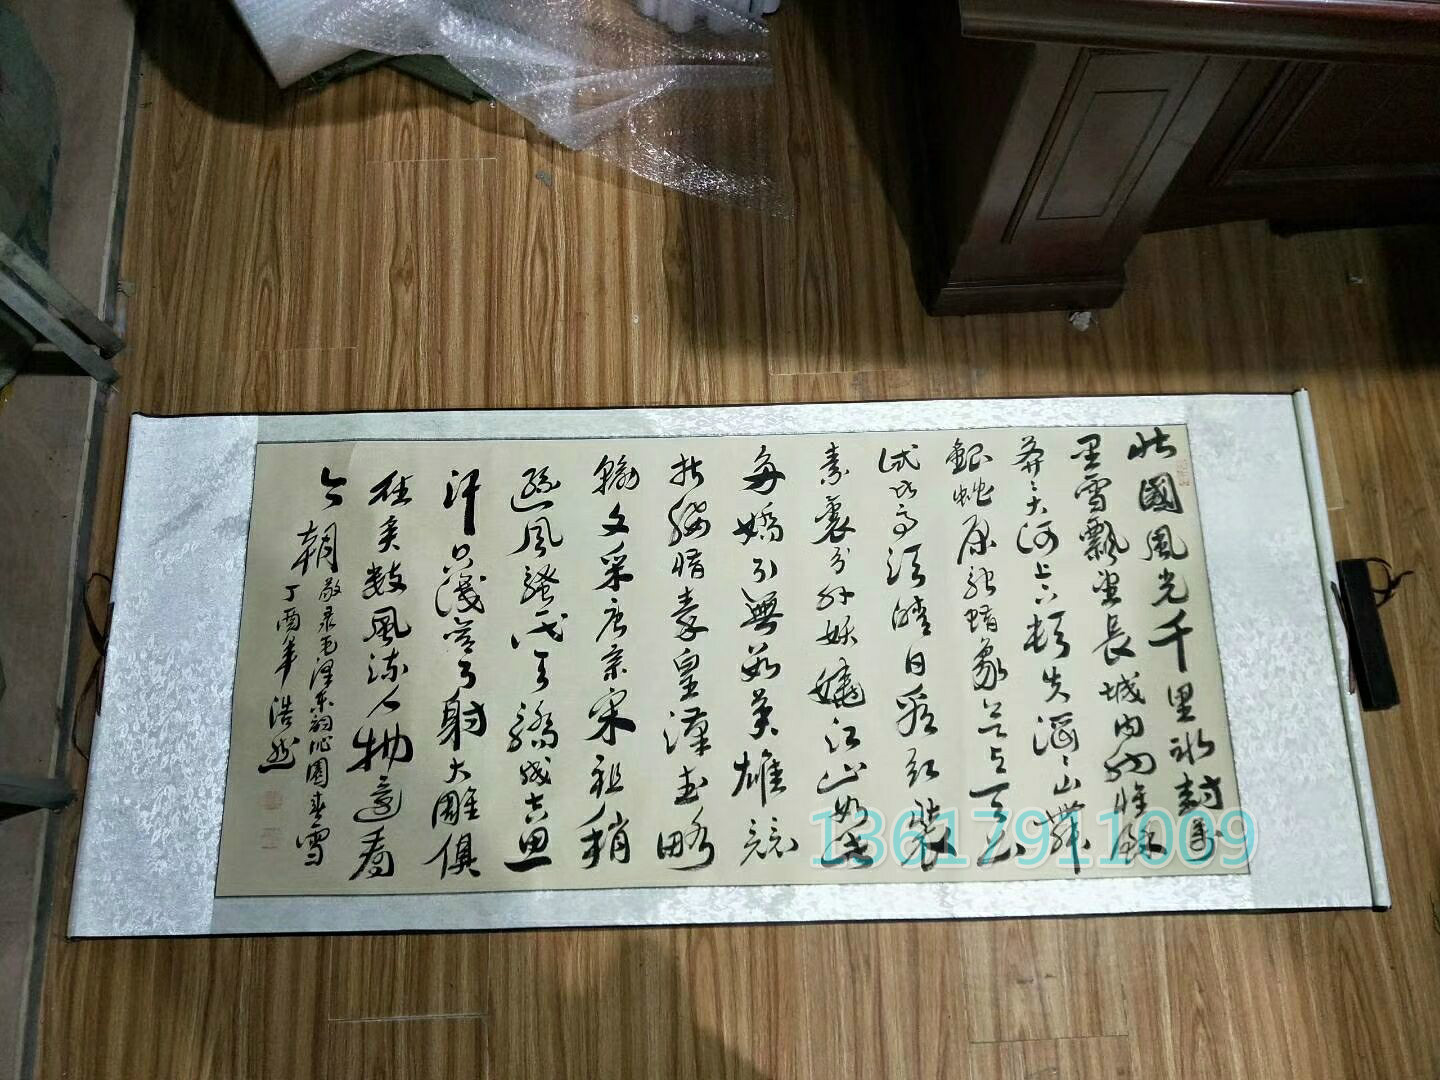 北國風光千里冰封萬
里雪飄望長城内外惟餘
莽〻大河上下頓失滔〻山舞
銀蛇原馳蜡象欲与天公
試比高須晴日看紅裝
素裹分外妖嬈江山如此
多嬌引無數英雄競
折腰惜秦皇漢武略
輸文采唐宗宋祖稍
遜風騷一代天驕成吉思
汗只識彎弓射大雕俱
往矣數風流人物還看
今朝 敬录毛澤東詞沁園春雪
丁酉年 浩然
13617911009